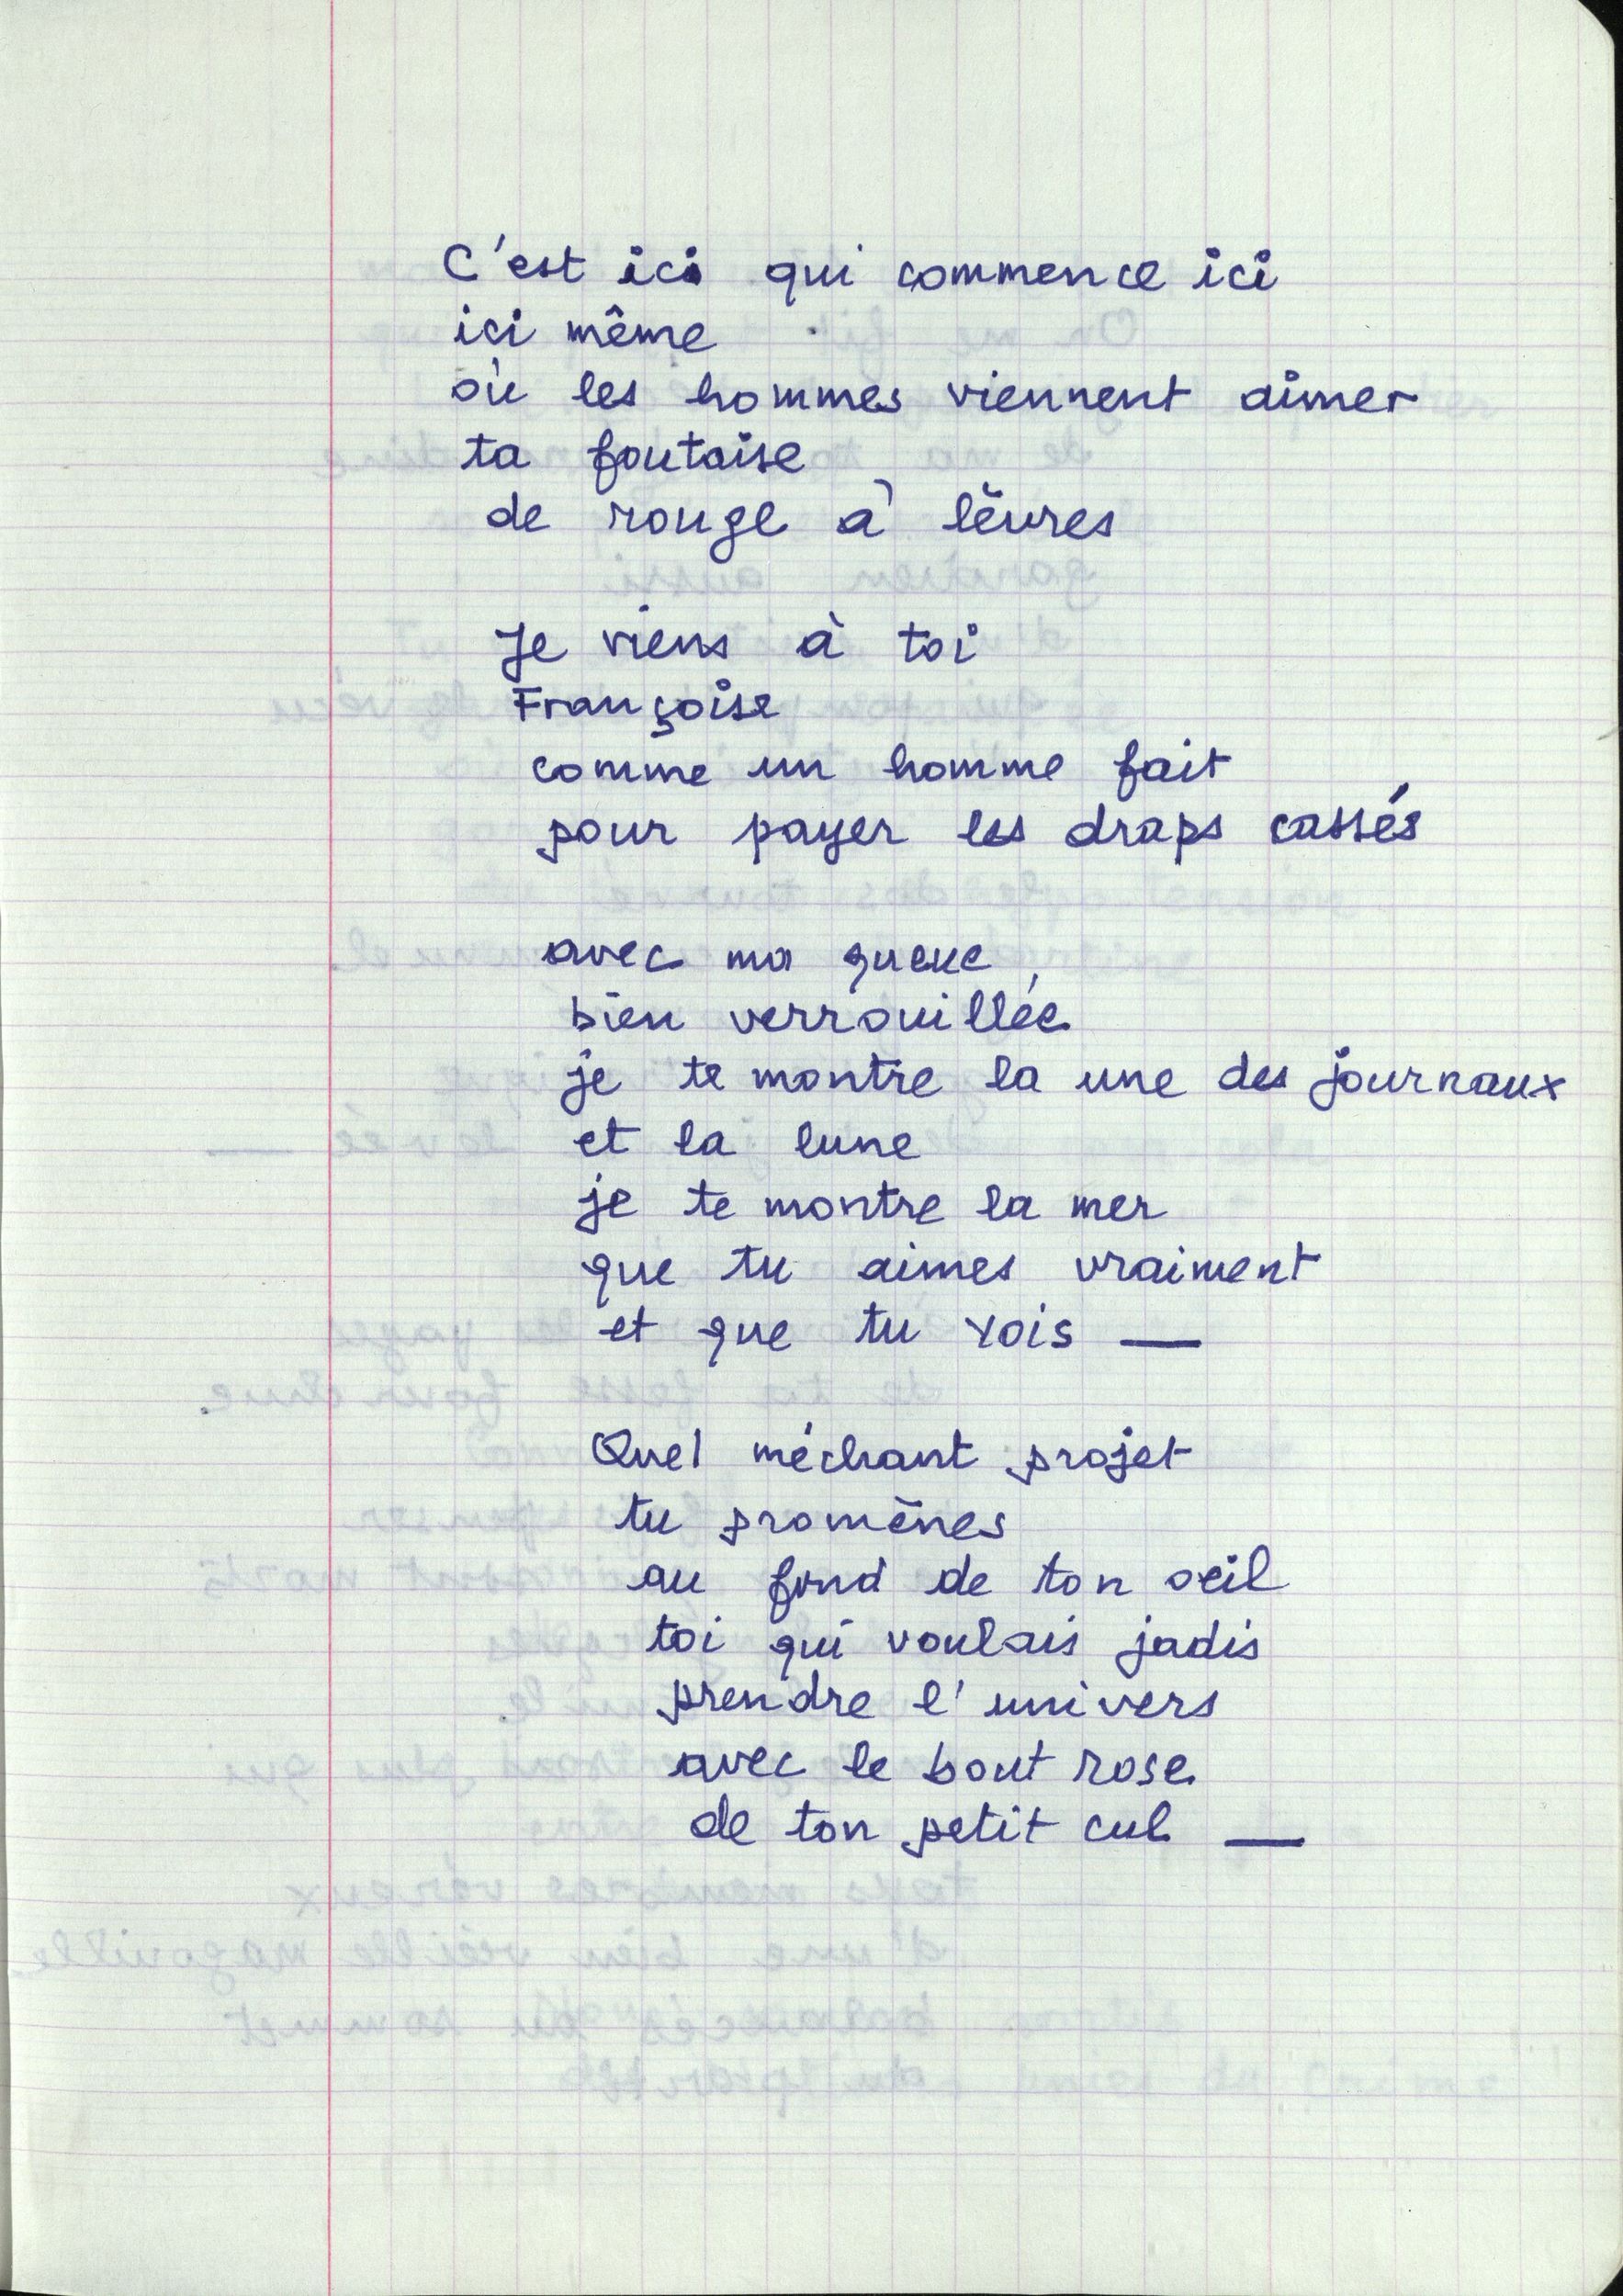 C'est ici qui commence ici
ici même
où les hommes viennent aimer
ta foutaise
de rouge à lèvres
Je viens à toi
Françoise
comme un homme fait
pour payer les draps cassés
avec ma queue
bien verrouillée
je te montre la une des journaux
et la lune
je te montre la mer
que tu aimes vraiment
et que tu vois —
Quel méchant projet
tu promènes
au fond de ton oeil
toi qui voulais jadis
prendre l'univers
avec le bout rose
de ton petit cul —